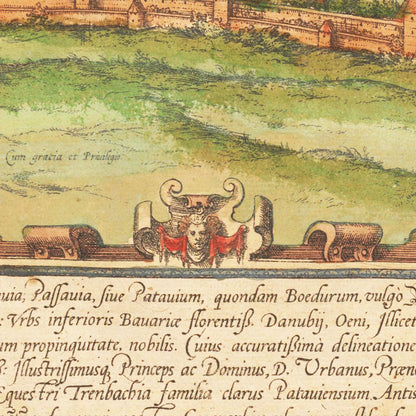 Cum gracia et Privilegio
uia, Passauia, siue Patauium, quondam Boedurum, vulgo
Vrbs inferioris Bauariæ florentiß. Danubij, Oeni, Illicet
um propinquitate, nobilis. Cuius accuratißimà delineatione
Illustrissimusq, Princeps ac Dominus, D. Urbanus, Præn
Equestri Trenbachia familia clarus Patauiensium Anti